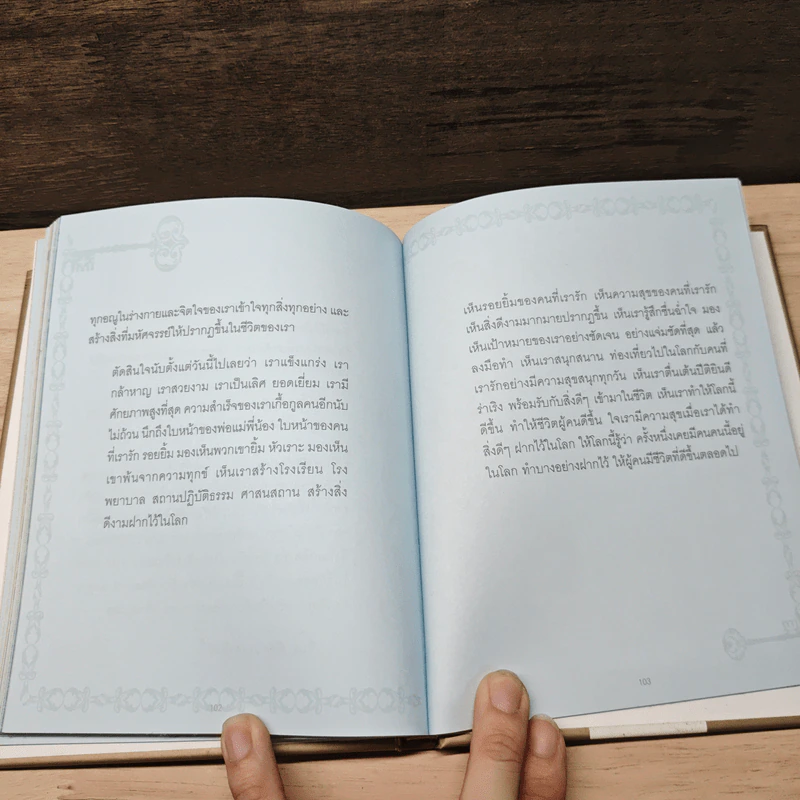 ทุกอณูในร่างกายและจิตใจของเราเข้าใจทุกสิ่งทุกอย่าง และ
สร้างสิ่งที่มหัศจรรย์ให้ปรากฏขึ้นในชีวิตของเรา
ตัดสินใจนับตั้งแต่วันนี้ไปเลยว่า เราแข็งแกร่ง เรา
กล้าหาญ เราสวยงาม เราเป็นเลิศ ยอดเยี่ยม เรามี
ศักยภาพสูงที่สุด ความสำเร็จของเราเกื้อกูลคนอีกนับ
ไม่ถ้วน นึกถึงใบหน้าของพ่อแม่พี่น้อง ใบหน้าของคน
ที่เรารัก รอยยิ้ม มองเห็นพวกเขายิ้ม หัวเราะ มองเห็น
เขาพ้นจากความทุกข์ เห็นเราสร้างโรงเรียน โรง
พยาบาล สถานปฏิบัติธรรม ศาสนสถาน สร้างสิ่ง
ดีงามฝากไว้ในโลก
102
เห็นรอยยิ้มของคนที่เรารัก เห็นความสุขของคนที่เรารัก
เห็นสิ่งดีงามมากมายปรากฏขึ้น เห็นเรารู้สึกชื่นฉ่ำใจ มอง
เห็นเป้าหมายของเราอย่างชัดเจน อย่างแจ่มชัดที่สุด แล้ว
ลงมือทำ เห็นเราสนุกสนาน ท่องเที่ยวไปในโลกกับคนที่
เรารักอย่างมีความสุขสนุกทุกวัน เห็นเราตื่นเต้นปีติยินดี
ร่าเริง พร้อมรับกับสิ่งดีๆ เข้ามาในชีวิต เห็นเราทำให้โลกนี้
ดีขึ้น ทำให้ชีวิตผู้คนดีขึ้น ใจเรามีความสุขเมื่อเราได้ทำ
สิ่งดีๆ ฝากไว้ในโลก ให้โลกนี้รู้ว่า ครั้งหนึ่งเคยมีคนคนนี้อยู่
ในโลก ทำบางอย่างฝากไว้ ให้ผู้คนมีชีวิตที่ดีขึ้นตลอดไป
103